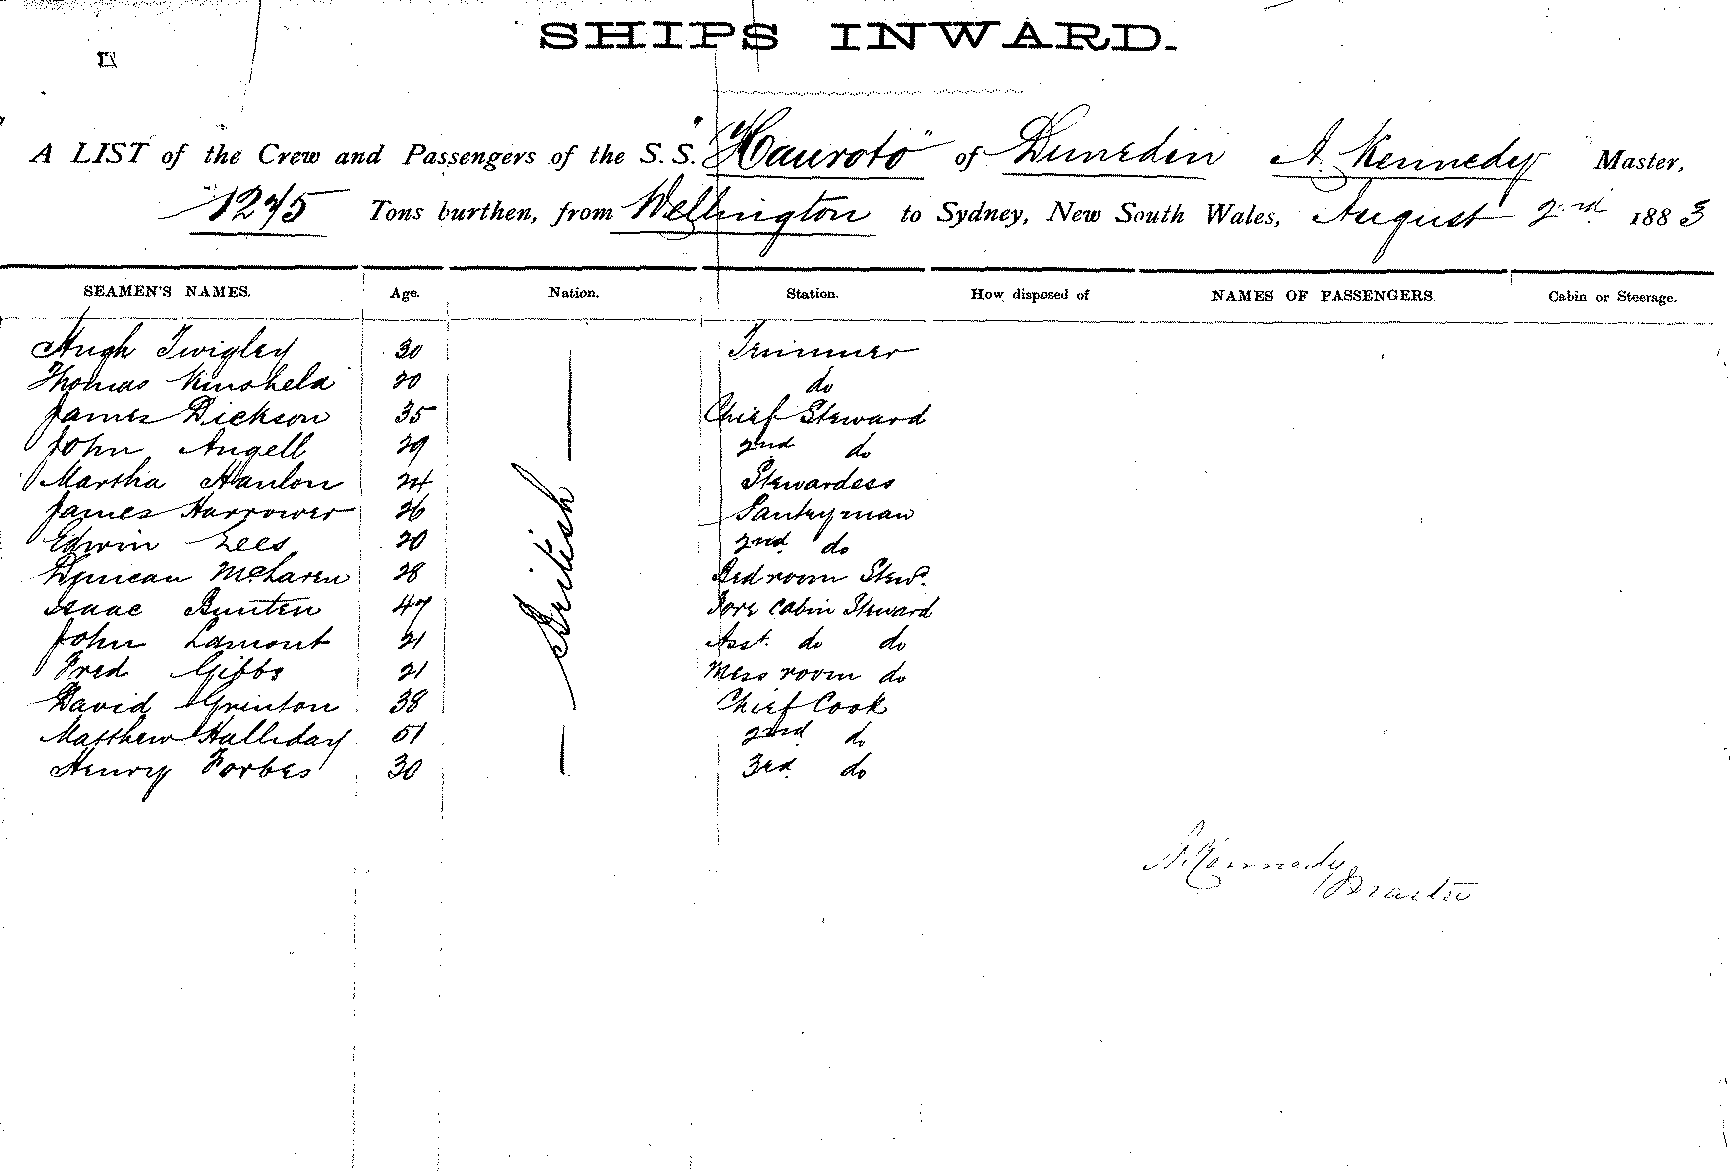 SHIPS INWARD.
A LIST of the Crew and Passengers of the S.S. "Hauroto" of Dunedin A. Kennedy Master,
1275 Tons burthen, from Wellington to Sydney, New South Wales, August 2nd 1883
SEAMEN'S NAMES. Age. Nation. Station. How disposed of NAMES OF PASSENGERS Cabin or Steerage.
Hugh Twigley 30 Trimmer
Thomas Kinshela 20 do
James Dickson 35 Chief Steward
John Angell 29 2nd do
Martha Hanlon 24 Stewardess
James Harrower 26 Pantryman
Edwin Lees 20 2nd do
Duncan McLaren 28 Bed room Stewd.
Isaac Bunten 47 Fore Cabin Steward
John Lamont 21 Asst. do do
Fred Gibbs 21 Mess room do
David Grinton 38 Chief Cook
Matthew Halliday 51 2nd do
Henry Forbes 30 3rd do
British
A. Kennedy
Master